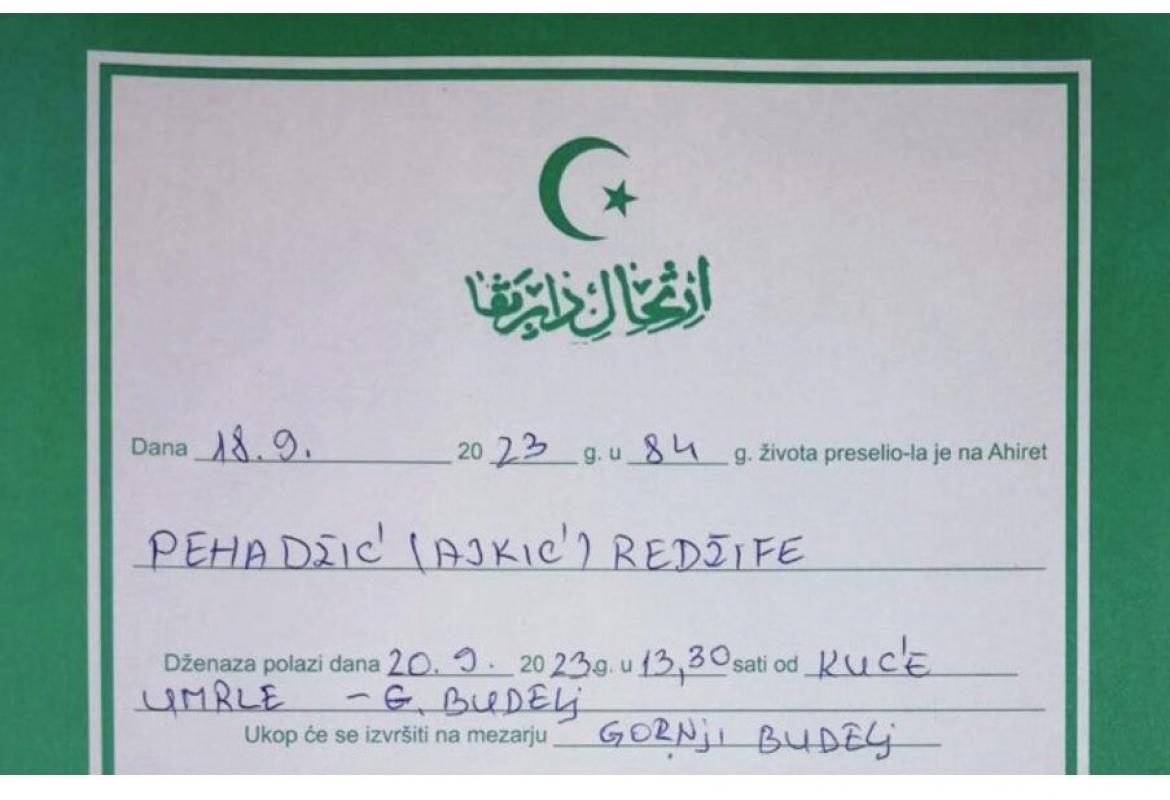 إرتحال دار بقا
Dana 18.9. 2023 g. u 84 g. života preselio-la je na Ahiret
PEHADŽIĆ (AJKIĆ) REDŽIFE
Dženaza polazi dana 20.9. 2023g. u 13,30 sati od KUĆE
UMRLE - G. BUDELJ
Ukop će se izvršiti na mezarju GORNJI BUDELJ